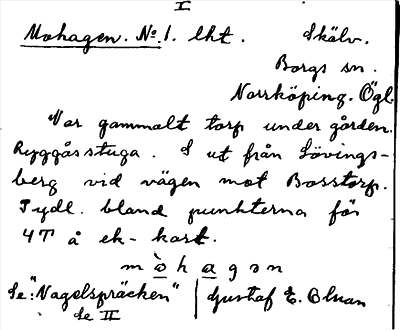 I
Mohagen. No. 1. lht. Skälv.
Borgs sn.
Norrköping. Ögl.
Var gammalt torp under gården.
Ryggåsstuga. S ut från Lövings-
berg vid vägen mot Bosstorp.
Tydl. bland punkterna för
4T å ek-kart.
mòhagən
Se: "Nagelspräcken" | Gustaf E. Olsson
Se II